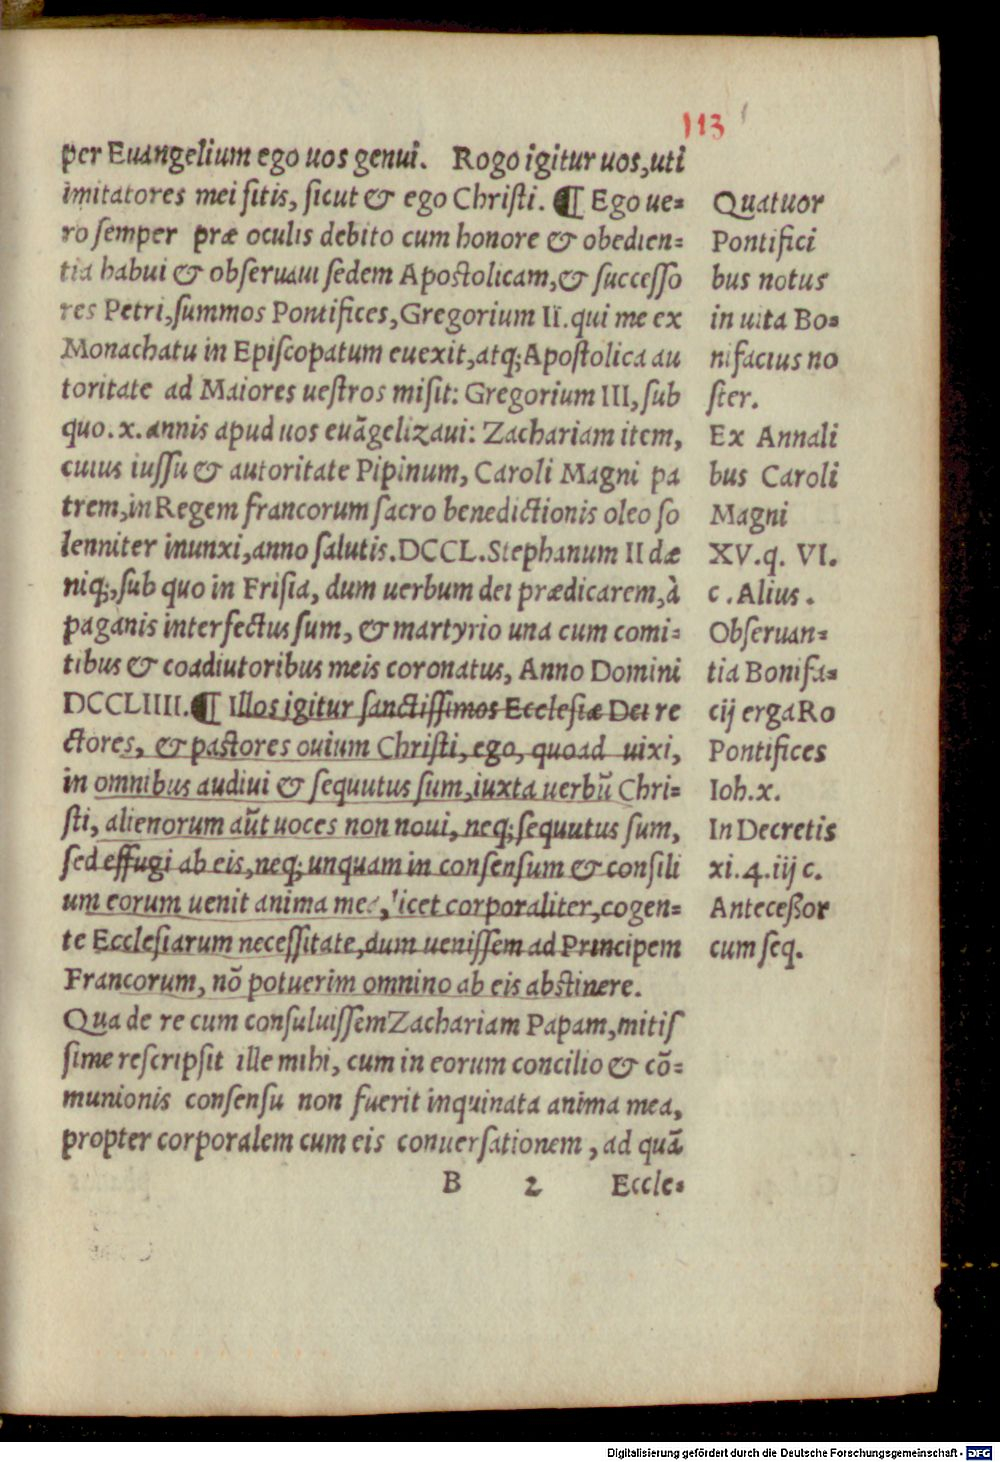 113
per Euangelium ego uos genui. Rogo igitur uos, uti
imitatores mei sitis, sicut & ego Christi. ¶ Ego ue=
ro semper præ oculis debito cum honore & obedien=
tia habui & obseruaui sedem Apostolicam, & successo
res Petri, summos Pontifices, Gregorium II. qui me ex
Monachatu in Episcopatum euexit, atq; Apostolica au
toritate ad Maiores uestros misit: Gregorium III, sub
quo .x. annis apud uos euãgelizaui: Zachariam item,
cuius iussu & autoritate Pipinum, Caroli Magni pa
trem, in Regem francorum sacro benedictionis oleo so
lenniter inunxi, anno salutis. DCCL. Stephanum II dæ
niq;, sub quo in Frisia, dum uerbum dei prædicarem, à
paganis interfectus sum, & martyrio una cum comi=
tibus & coadiutoribus meis coronatus, Anno Domini
DCCLIIII. ¶ Illos igitur sanctissimos Ecclesiæ Dei re
ctores, & pastores ouium Christi, ego, quoad uixi,
in omnibus audiui & sequutus sum, iuxta uerbũ Chri=
sti, alienorum aũt uoces non noui, neq; sequutus sum,
sed effugi ab eis, neq; unquam in consensum & consili
um eorum uenit anima mea, licet corporaliter, cogen=
te Ecclesiarum necessitate, dum uenissem ad Principem
Francorum, nõ potuerim omnino ab eis abstinere.
Qua de re cum consuluissem Zachariam Papam, mitis
sime rescripsit ille mihi, cum in eorum concilio & cõ=
munionis consensu non fuerit inquinata anima mea,
propter corporalem cum eis conuersationem, ad quã
B 2 Eccle=
Quatuor
Pontifici
bus notus
in uita Bo=
nifacius no
ster.
Ex Annali
bus Caroli
Magni
XV. q. VI.
c. Alius.
Obseruan=
tia Bonifa=
cij erga Ro
Pontifices
Ioh. x.
In Decretis
xi. 4. iij c.
Anteceßor
cum seq.
Digitalisierung gefördert durch die Deutsche Forschungsgemeinschaft - DFG